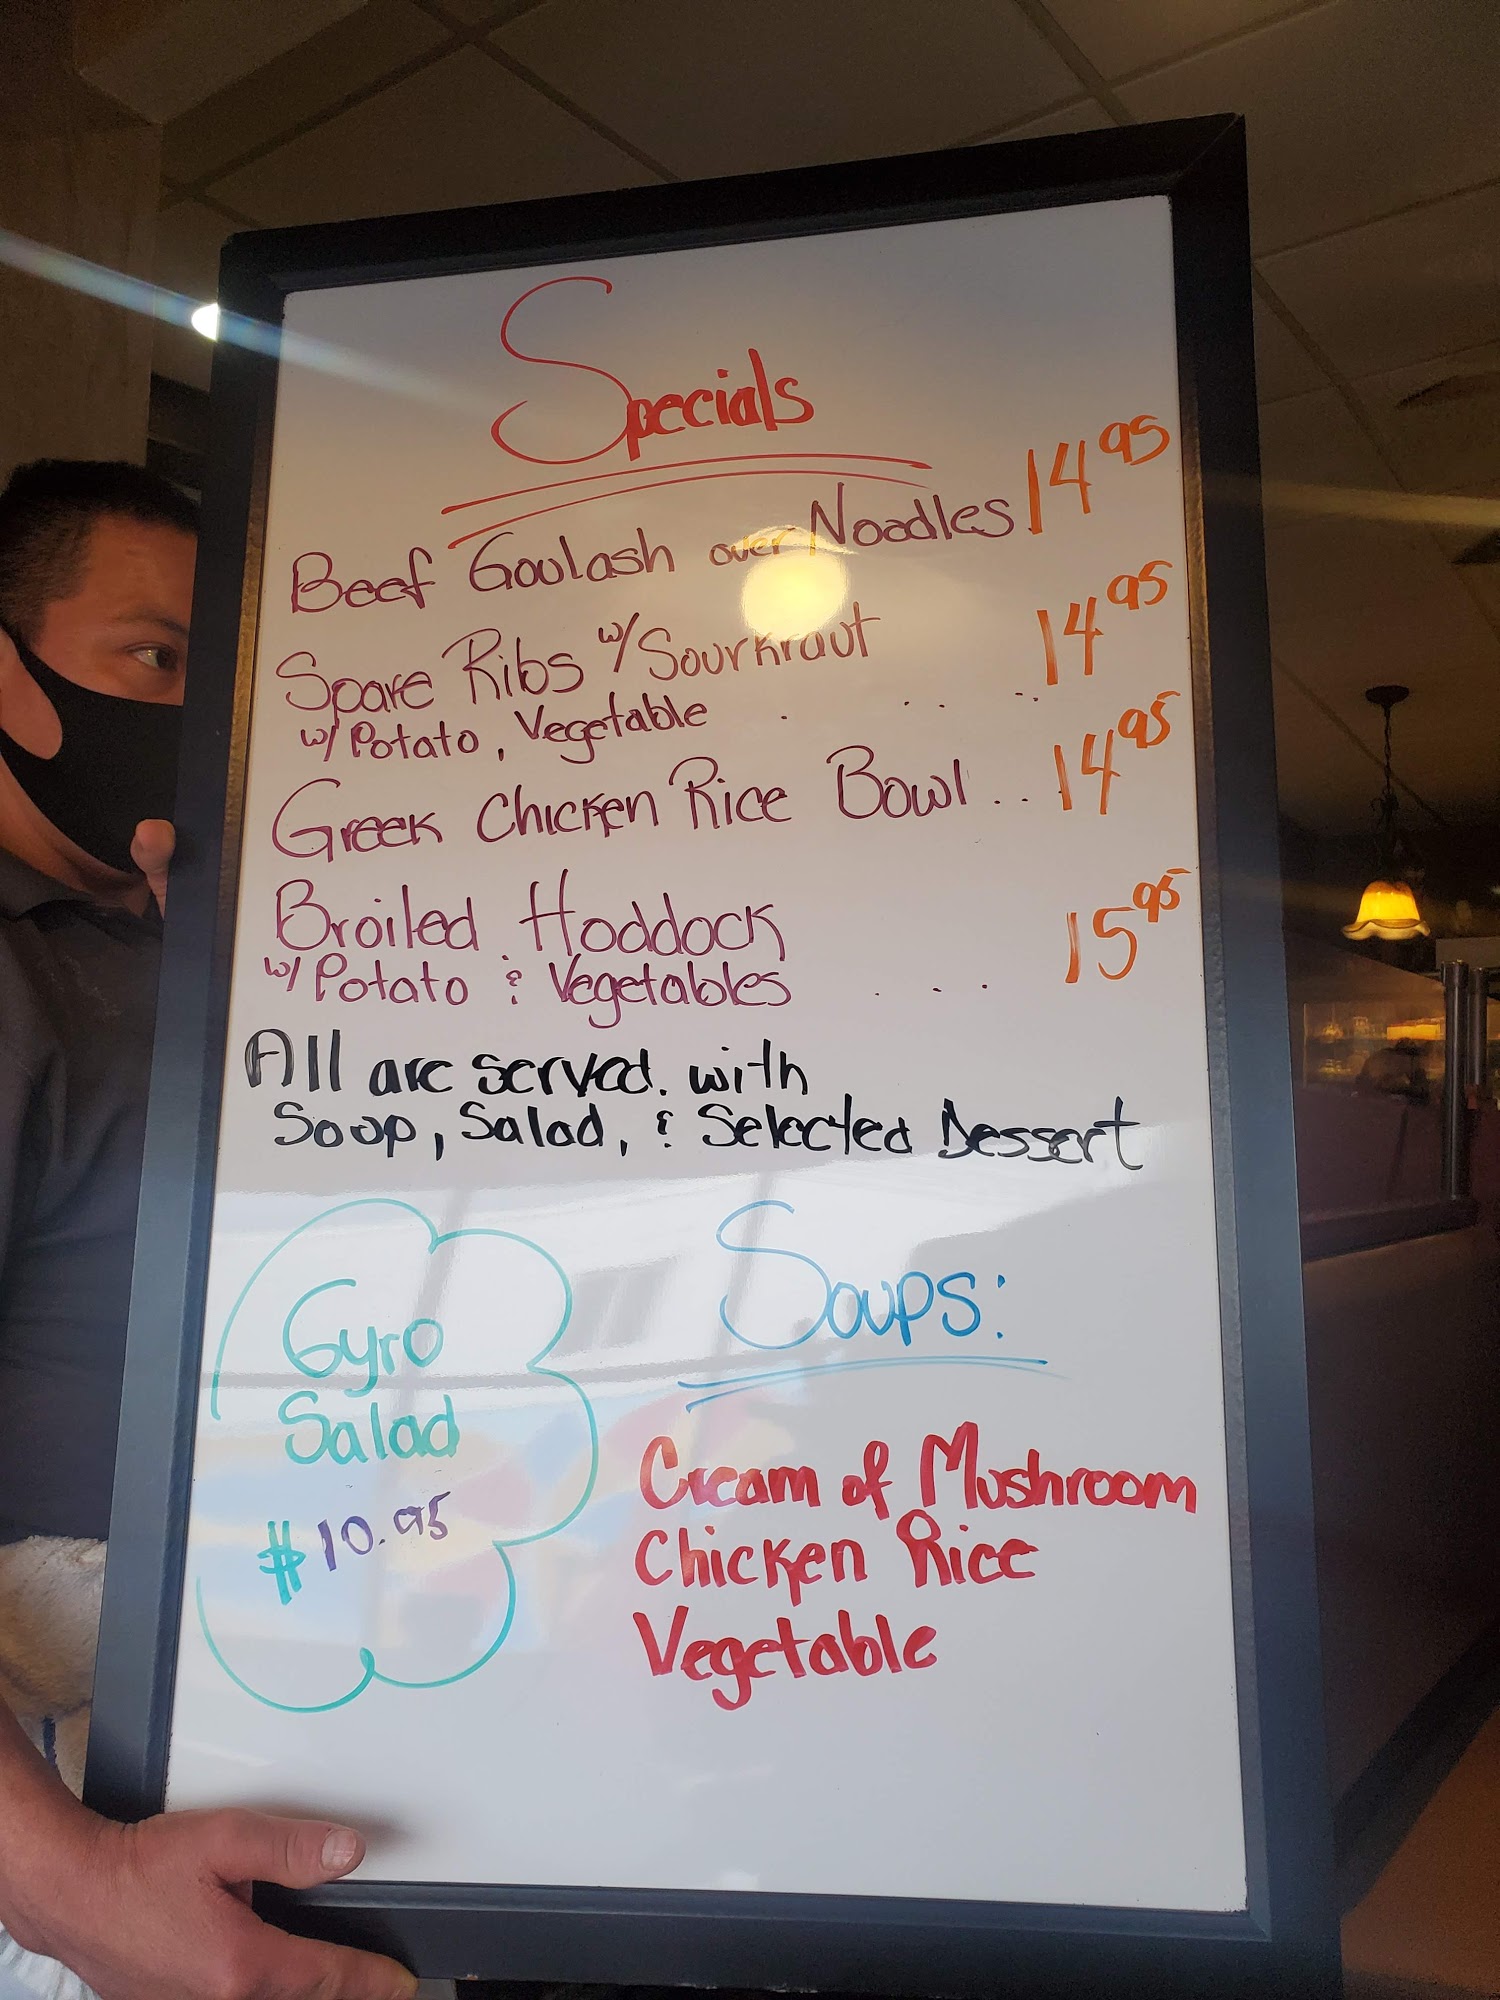 Specials
Beef Goulash over Noodles 14 95
Spare Ribs w/ Sourkraut 14 95
w/ Potato, Vegetable . .. ..
Greek Chicken Rice Bowl ... 14 95
Broiled Hoddock 15 95
w/ Potato & Vegetables . . . .
All are served. with
Soup, Salad, & Selected Dessert
Gyro
Salad
$10.95
Soups:
Cream of Mushroom
Chicken Rice
Vegetable